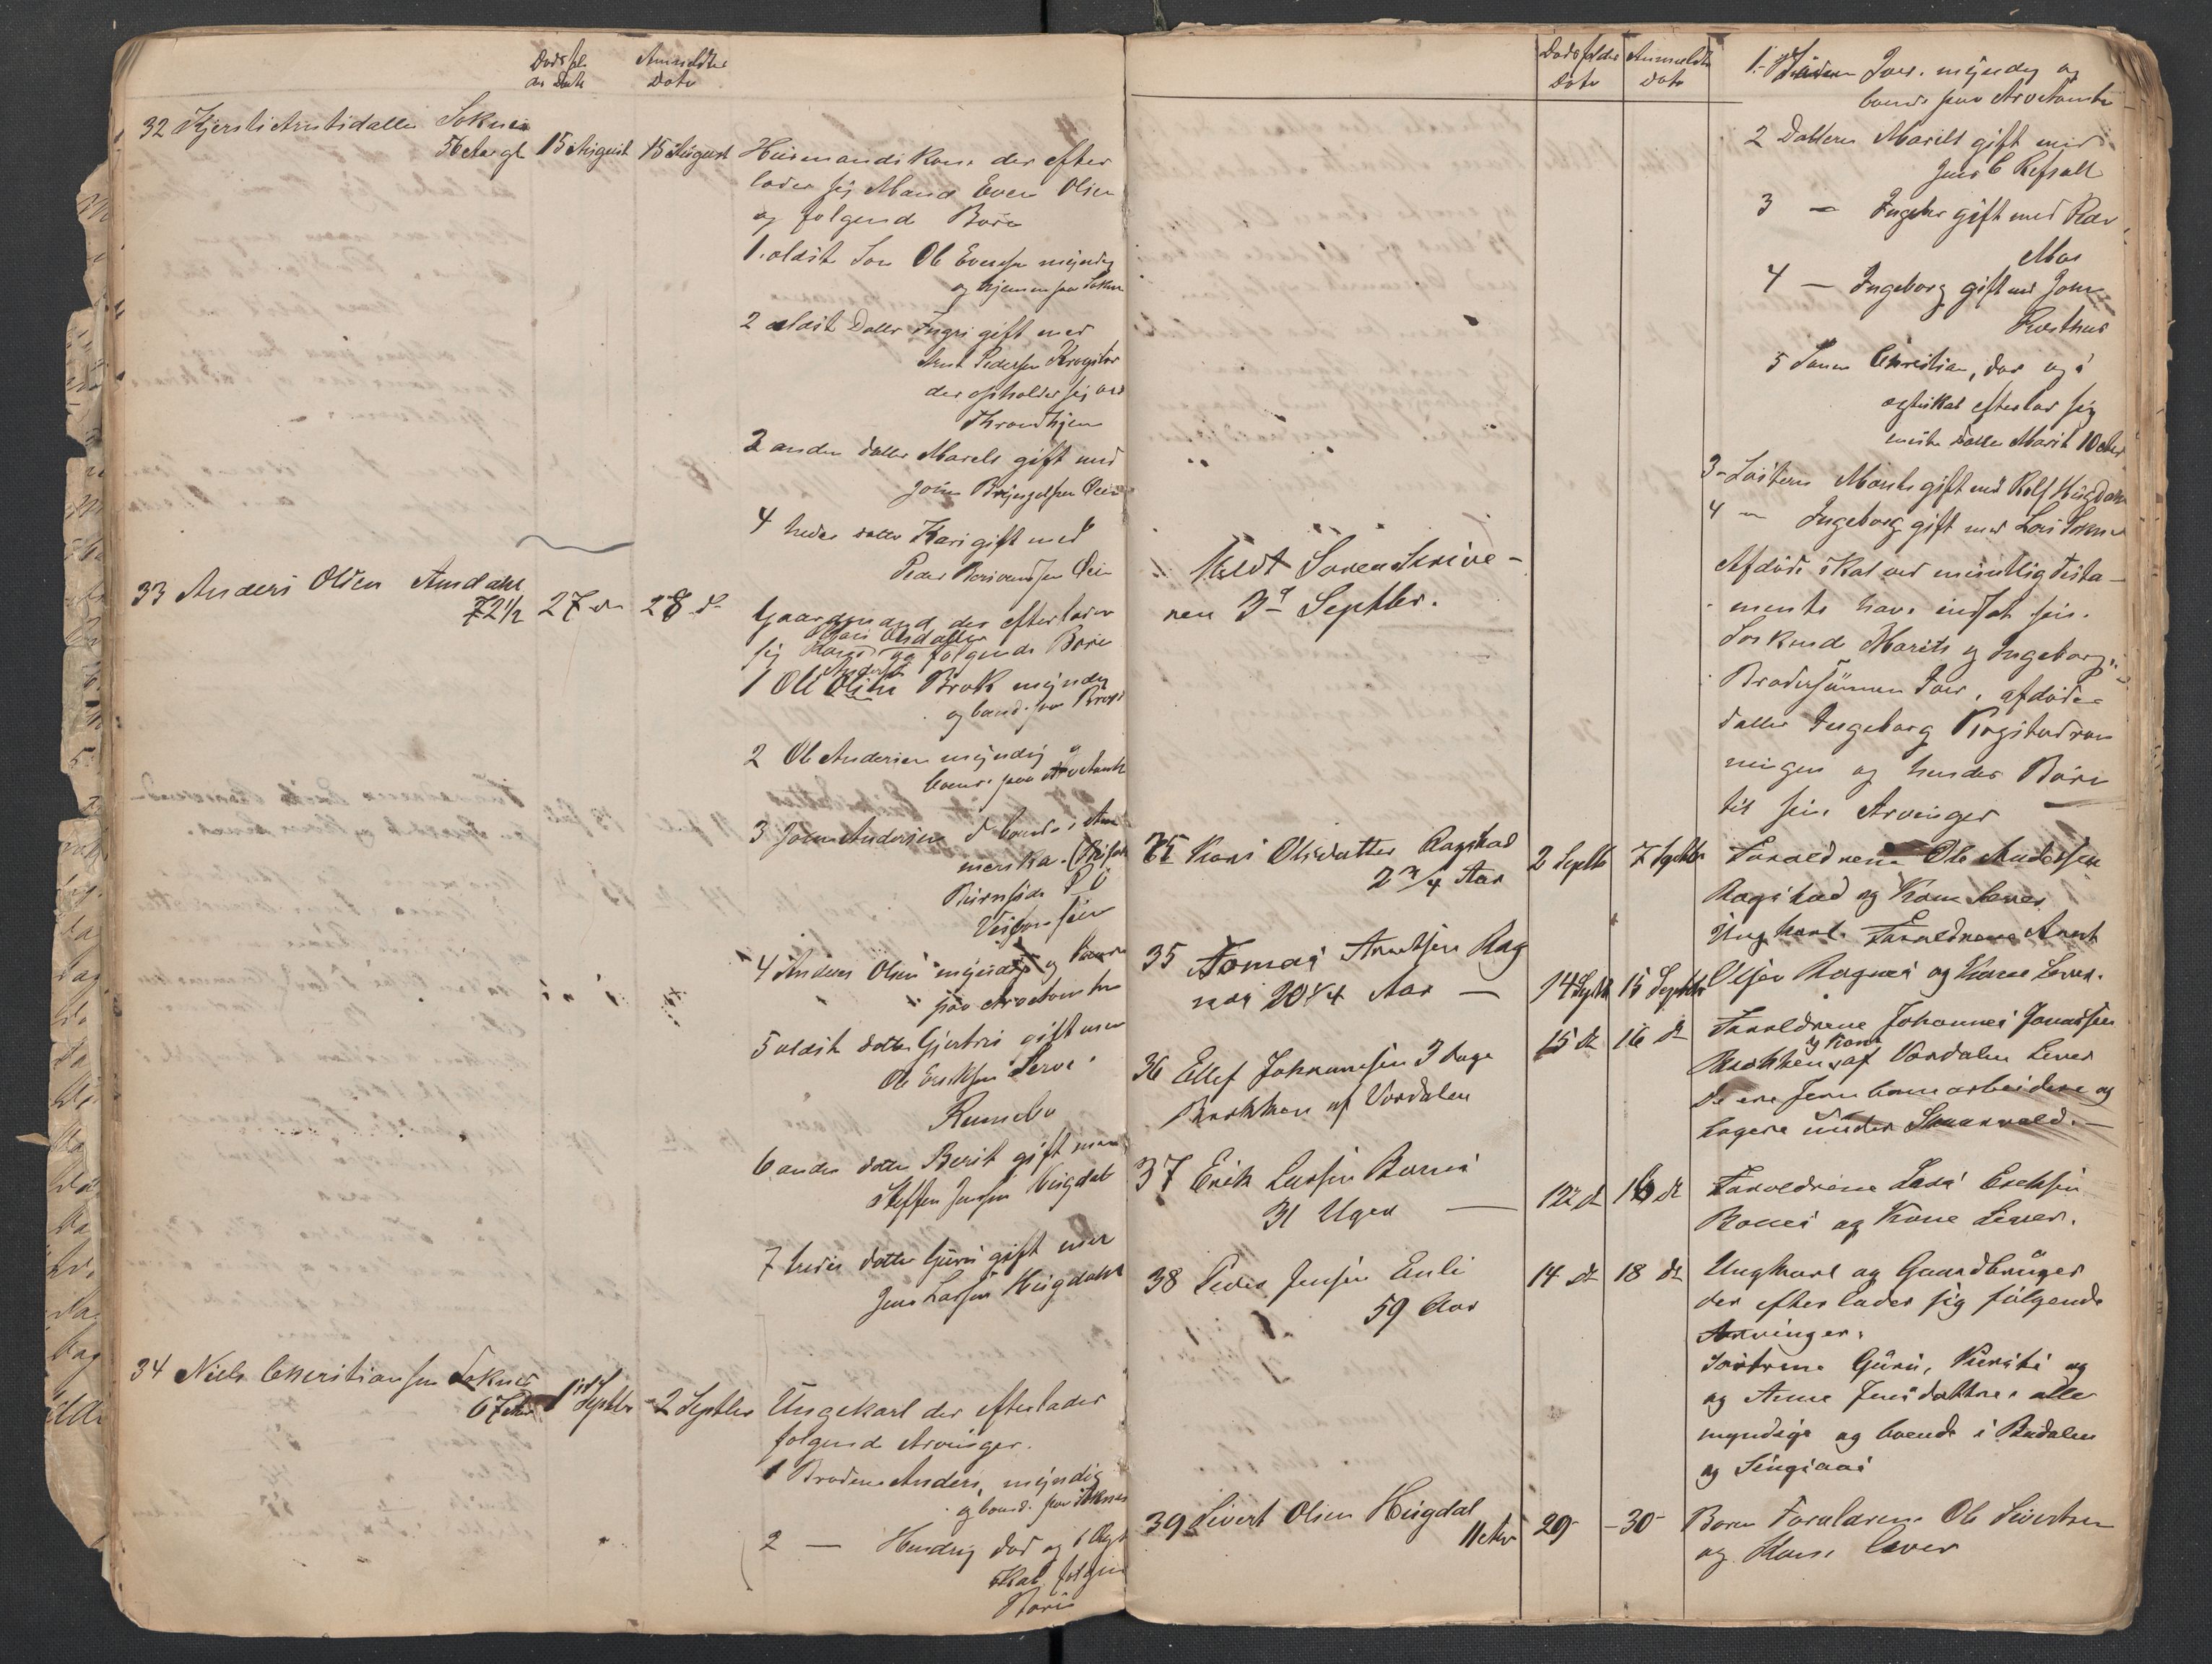 Dødsfal
ds Dato
Anmeldte
Dato
32 Kjersti Arntsdatter Soknes
56 Aar gl 15 August 15 August
Huusmandskone der efter
lader sig Mand Even Olsen
og følgende Børn
1. ældste Søn Ole Evensen myndig
og hjemme paa Soknes
2 ældste Datter Ingri gift med
Arnt Pedersen Krogstad
der opholder sig ved
Throndhjem
3 anden datter Marels gift med
John Brynjelsen
4 tredie datter Kari gift med
Peder
33 Anders Olsen Amdahl
72½ 27 do 28 do
Gaardmand der efterlader
sig Kone og følgende Børn
1 Ole Olsen Brok myndig
og boend. paa
2 Ole Andersen myndig
boende paa
3 John Andersen d boende i Am
merika
4 Anders Olsen myndig og boende
paa
5 ældste datter Gjertru gift med
Ole Eriksen
6 anden datter Berit gift med
Steffen Jensen Hugdal
7 tredie datter Guru gift med
Jens Larsen Hugdahl
34 Niels Christiansen Soknes
67 Aar 1ste Septbr 2 Septbr
Ungekarl der efterlader
følgende Arvinger.
1 Broderen Anders, myndig
og boend. paa Soknes
2 — Hendrig død og i Ægt
skab følgen
Børn
Dødsfaldes
Dato
Anmeldte
Dato
1. Sønnen Joer. myndig og
boende paa
2 Datteren Marit gift med
Jens C Refsall
3 — Ingeb gift med Peder
Moe
4 — Ingeborg gift med John
5 Sønnen Christian, død og i
ægteskab efterlad sig
Datter Marit 10 Aar
3 Søsteren Marit gift med Rolf Hugdahl
4 — Ingeborg gift med Lars Soknes
Afdøde skal ved mundtlig Testa-
mente have indsat sin.
Søskende Marit og Ingeborg,
Brodersønnen Joer, afdødes
datter Ingeborg Krogstadrøn
ningen og hendes Børn
til sine Arvinger
Meldt Sorenskrive-
ren 3d Septbr.
Kari Olsdatter Rogstad
2¾ Aar
2 Septb 7 Septbr
Foreldrene Ole Andersen
Rogstad og Kone Lever
35 Tomas Arntsen Rog
nes 20¼ Aar —
14 Septb 15 Septbr
Ungkarl. Foreldrene Arnt
Olsen Rognes og Kone Lever.
36 Ellef Johannesen 3 dage
Barkhen af Værdalen
15 do 16 do
Foreldrene Johannes Jonassen
og Kone
af Værdalen Lever
de ere Jernbanearbeidere og
Logere under
37 Erik Larsen Bones
31 Uger —
12 do 16 do
Foreldrene Lars Erichsen
Bones og Kone Lever.
38 Peder Jensen Enli
59 Aar
14 do 18 do
Ungkarl og Gaardbruger
der efterlader sig følgende
Arvinger.
Søstrene Guru, Kiersti og
og Anne Jensdattre. alle
myndige og boende i Budalen
og Singsaas
39 Sivert Olsen Hugdal
11 Aar
29 – 30
Barn Forældrene Ole Sivertsen
og Kone lever